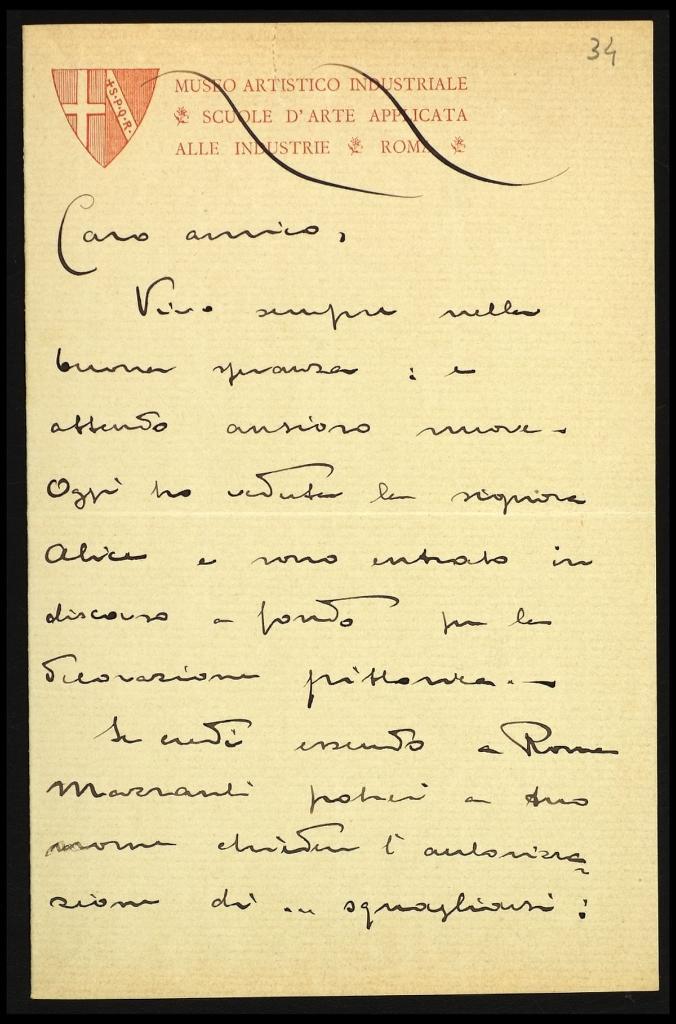 34
MUSEO ARTISTICO INDUSTRIALE
SCUOLE D'ARTE APPLICATA
ALLE INDUSTRIE ROMA
+S.P.Q.R.
Caro amico,
Vivo sempre nella
buona speranza : e
attendo ansioso nuove.
Oggi ho veduta la signora
Alice e sono entrato in
discorso a fondo per la
decorazione pittorica. —
Se credi essendo a Roma
Mazzanti potrei a tuo
nome chieder l'autorizza=
zione di ... squagliarsi :